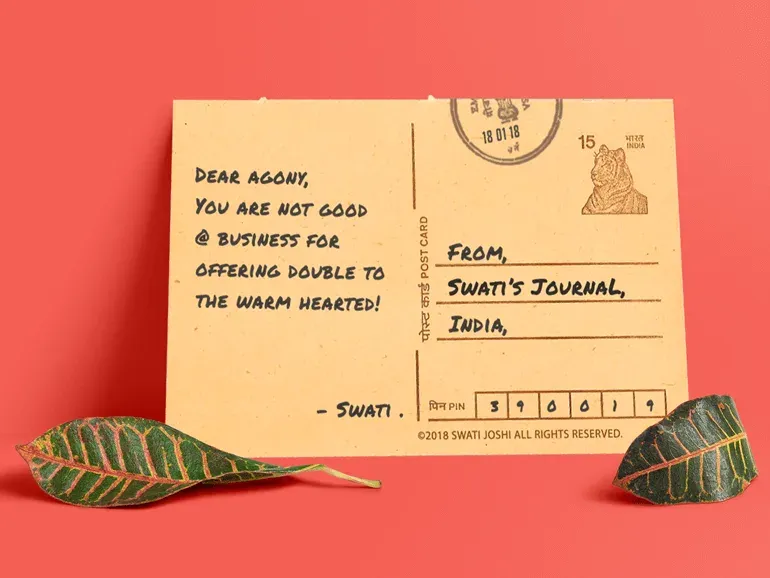 DEAR AGONY,
YOU ARE NOT GOOD
@ BUSINESS FOR
OFFERING DOUBLE TO
THE WARM HEARTED!
- SWATI.
18 01 18
15 भारत
INDIA
पोस्ट कार्ड POST CARD
FROM,
SWATI'S JOURNAL,
INDIA,
पिन PIN 3 9 0 0 1 9
©2018 SWATI JOSHI ALL RIGHTS RESERVED.